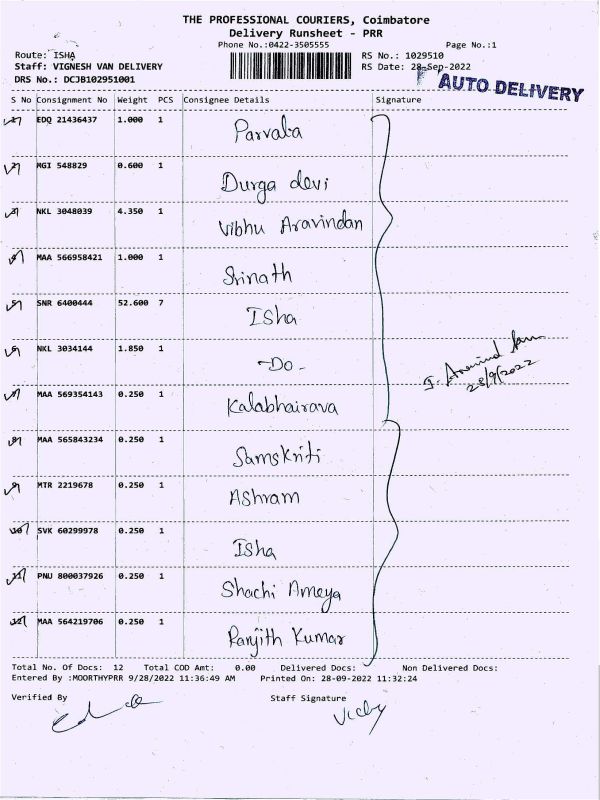 THE PROFESSIONAL COURIERS, Coimbatore
Delivery Runsheet - PRR
Phone No.:0422-3505555 Page No.:1
Route: ISHA RS No.: 1029510
Staff: VIGNESH VAN DELIVERY RS Date: 28-Sep-2022
DRS No.: DCJB102951001
AUTO DELIVERY
S No Consignment No Weight PCS Consignee Details Signature
1 EDQ 21436437 1.000 1 Parvaba
2 MGI 548829 0.600 1 Durga devi
3 NKL 3048039 4.350 1 Vibhu Aravindan
4 MAA 566958421 1.000 1 Srinath
5 SNR 6400444 52.600 7 Isha
6 NKL 3034144 1.850 1 -Do-
28/9/2022
7 MAA 569354143 0.250 1 Kalabhairava
8 MAA 565843234 0.250 1 Samskriti
9 MTR 2219678 0.250 1 Ashram
10 SVK 60299978 0.250 1 Isha
11 PNU 800037926 0.250 1 Shachi Ameya
12 MAA 564219706 0.250 1 Ranjith Kumar
Total No. Of Docs: 12 Total COD Amt: 0.00 Delivered Docs: Non Delivered Docs:
Entered By :MOORTHYPRR 9/28/2022 11:36:49 AM Printed On: 28-09-2022 11:32:24
Verified By Staff Signature
Vicky